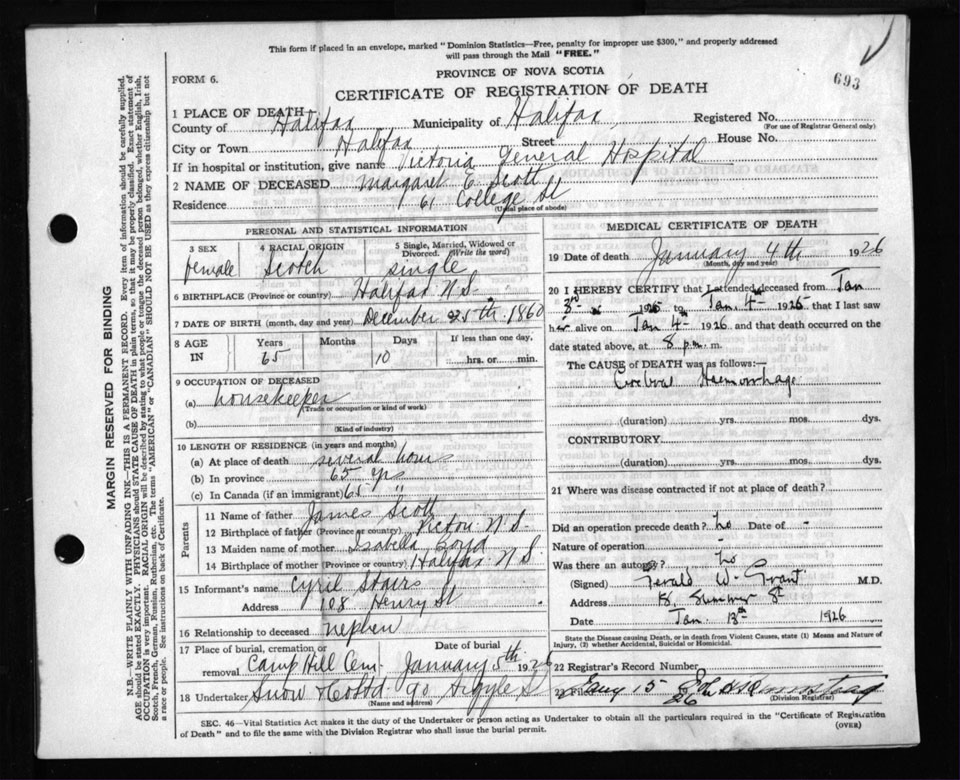 This form if placed in an envelope, marked "Dominion Statistics—Free, penalty for improper use $300," and properly addressed
will pass through the Mail "FREE."
693
FORM 6.
PROVINCE OF NOVA SCOTIA
CERTIFICATE OF REGISTRATION OF DEATH
MARGIN RESERVED FOR BINDING
N.B.—WRITE PLAINLY WITH UNFADING INK—THIS IS A PERMANENT RECORD. Every item of information should be carefully supplied.
AGE should be stated EXACTLY. PHYSICIANS should STATE CAUSE OF DEATH in plain terms, so that it may be properly classified. Exact statement of
OCCUPATION is very important. RACIAL ORIGIN will be described by stating to what people or tongue the deceased person belonged, whether English, Irish,
Scotch, French, German, Russian, Ruthenian, etc. The terms "AMERICAN" or "CANADIAN" SHOULD NOT BE USED as they express citizenship but not
a race or people. See instructions on back of Certificate.
1 PLACE OF DEATH
County of Halifax Municipality of Halifax, Registered No.
(For use of Registrar General only)
City or Town Halifax Street House No.
If in hospital or institution, give name Victoria General Hospital
2 NAME OF DECEASED Margaret E. Scott
Residence 61 College St
(Usual place of abode)
PERSONAL AND STATISTICAL INFORMATION
3 SEX 4 RACIAL ORIGIN 5 Single, Married, Widowed or
Divorced. (Write the word)
female Scotch single
6 BIRTHPLACE (Province or country) Halifax N.S.
7 DATE OF BIRTH (month, day and year) December 25th. 1860
8 AGE IN Years Months Days If less than one day,
65 10 hrs. or min.
9 OCCUPATION OF DECEASED
(a) housekeeper
(Trade or occupation or kind of work)
(b)
(Kind of industry)
10 LENGTH OF RESIDENCE (in years and months)
(a) At place of death several hours
(b) In province 65 yrs
(c) In Canada (if an immigrant) 65 "
Parents
11 Name of father James Scott
12 Birthplace of father (Province or country) Pictou N.S.
13 Maiden name of mother Isabella Boyd
14 Birthplace of mother (Province or country) Halifax N.S.
15 Informant's name Cyril Stairs
Address 108 Henry St
16 Relationship to deceased nephew
17 Place of burial, cremation or removal Date of burial
Camp Hill Cem. January 5th 1926
18 Undertaker Snow & Co Ltd 90 Argyle St
(Name and address)
MEDICAL CERTIFICATE OF DEATH
19 Date of death January 4th 1926
(Month, day and year)
20 I HEREBY CERTIFY that I attended deceased from Jan
3rd 1925 to Jan. 4- 1925 that I last saw
her alive on Jan 4th 1926 and that death occurred on the
date stated above, at 8 p.m. m.
The CAUSE OF DEATH was as follows:—
Cerebral Haemorrhage.
(duration) yrs. mos. dys.
CONTRIBUTORY
(duration) yrs. mos. dys.
21 Where was disease contracted if not at place of death?
Did an operation precede death? no Date of -
Nature of operation -
Was there an autopsy? no
(Signed) Gerald W. Grant M.D.
Address 18. Summer St
Date Jan. 13th 1926
State the Disease causing Death, or in death from Violent Causes, state (1) Means and Nature of
Injury, (2) whether Accidental, Suicidal or Homicidal.
22 Registrar's Record Number
23 Filed Jany 15 26
(Division Registrar)
SEC. 46—Vital Statistics Act makes it the duty of the Undertaker or person acting as Undertaker to obtain all the particulars required in the "Certificate of Registration
of Death" and to file the same with the Division Registrar who shall issue the burial permit.
(OVER)